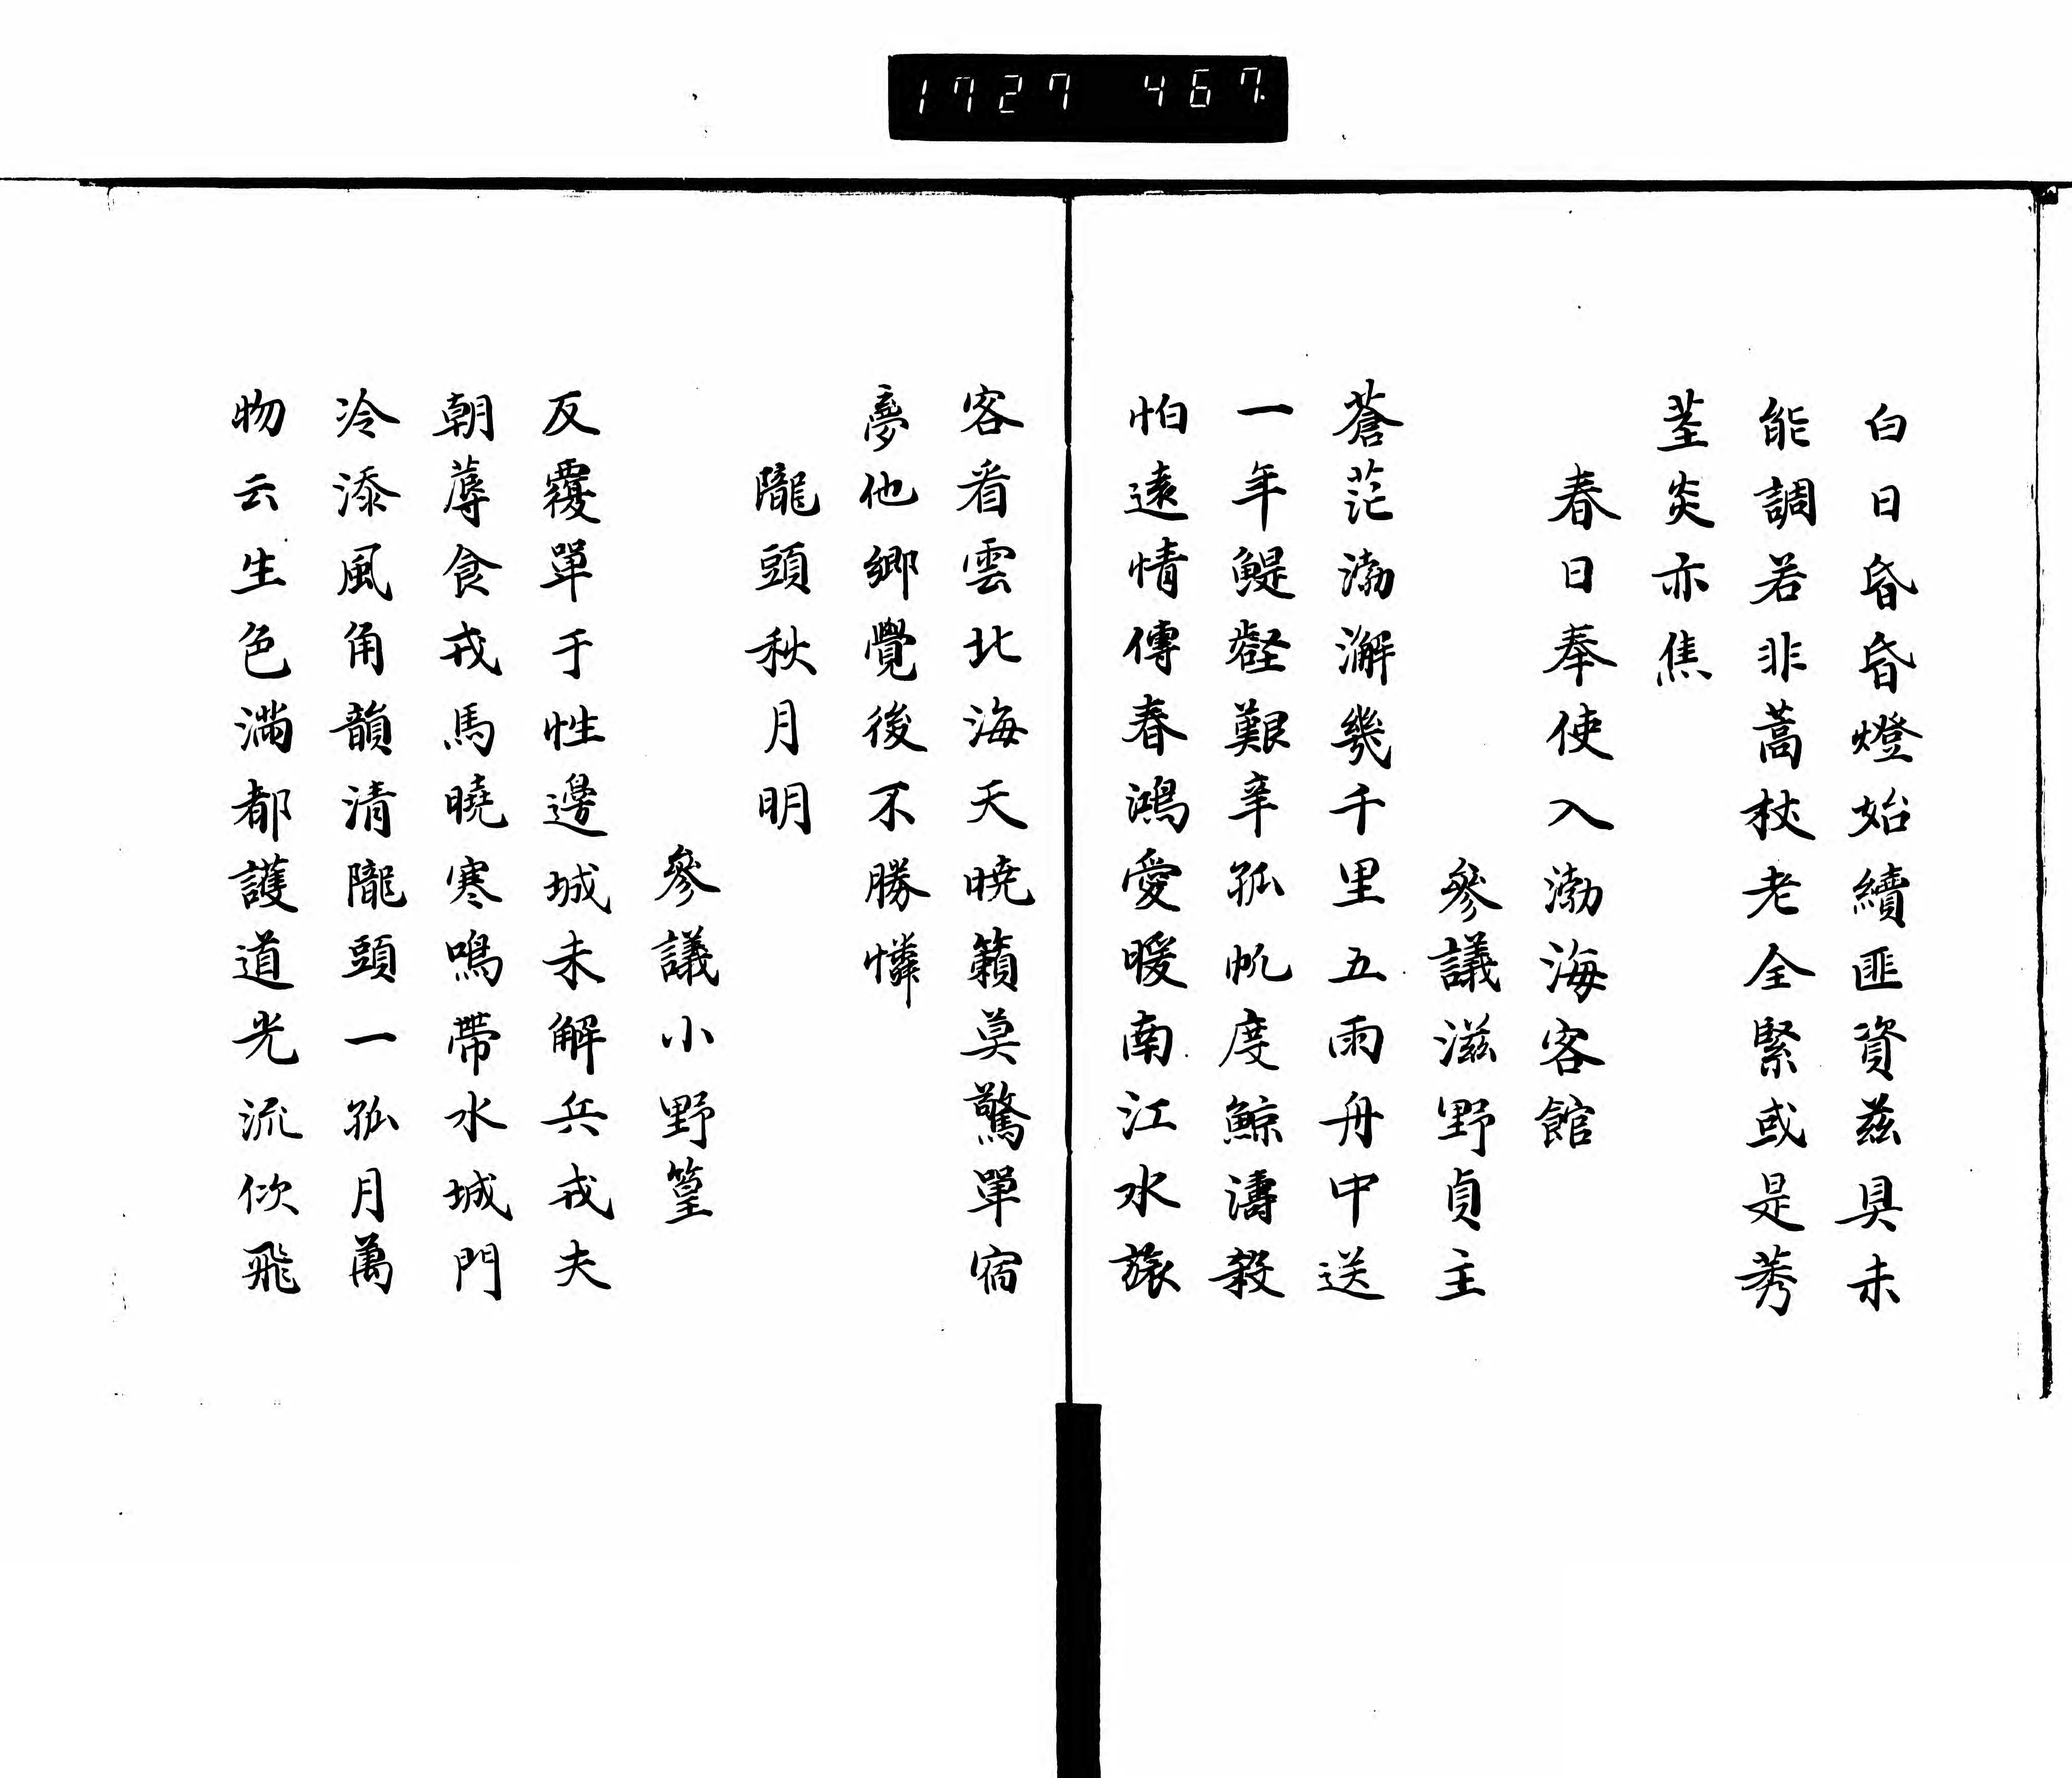 1727 467.
白日昏昏燈始續匪資茲具未
能調若非蒿杖老全緊或是莠
莖炎亦焦
春日奉使入渤海客館
參議滋野貞主
蒼茫渤澥幾千里五雨舟中送
一年鯷壑艱辛孤帆度鯨濤殺
怕遠情傳春鴻愛暖南江水旅
客看雲北海天曉籟莫驚單宿
夢他鄉覺後不勝憐
隴頭秋月明
參議小野篁
反覆單于性邊城未解兵戎夫
朝蓐食戎馬曉寒鳴帶水城門
冷添風角韻清隴頭一孤月萬
物云生色滿都護道光流佽飛